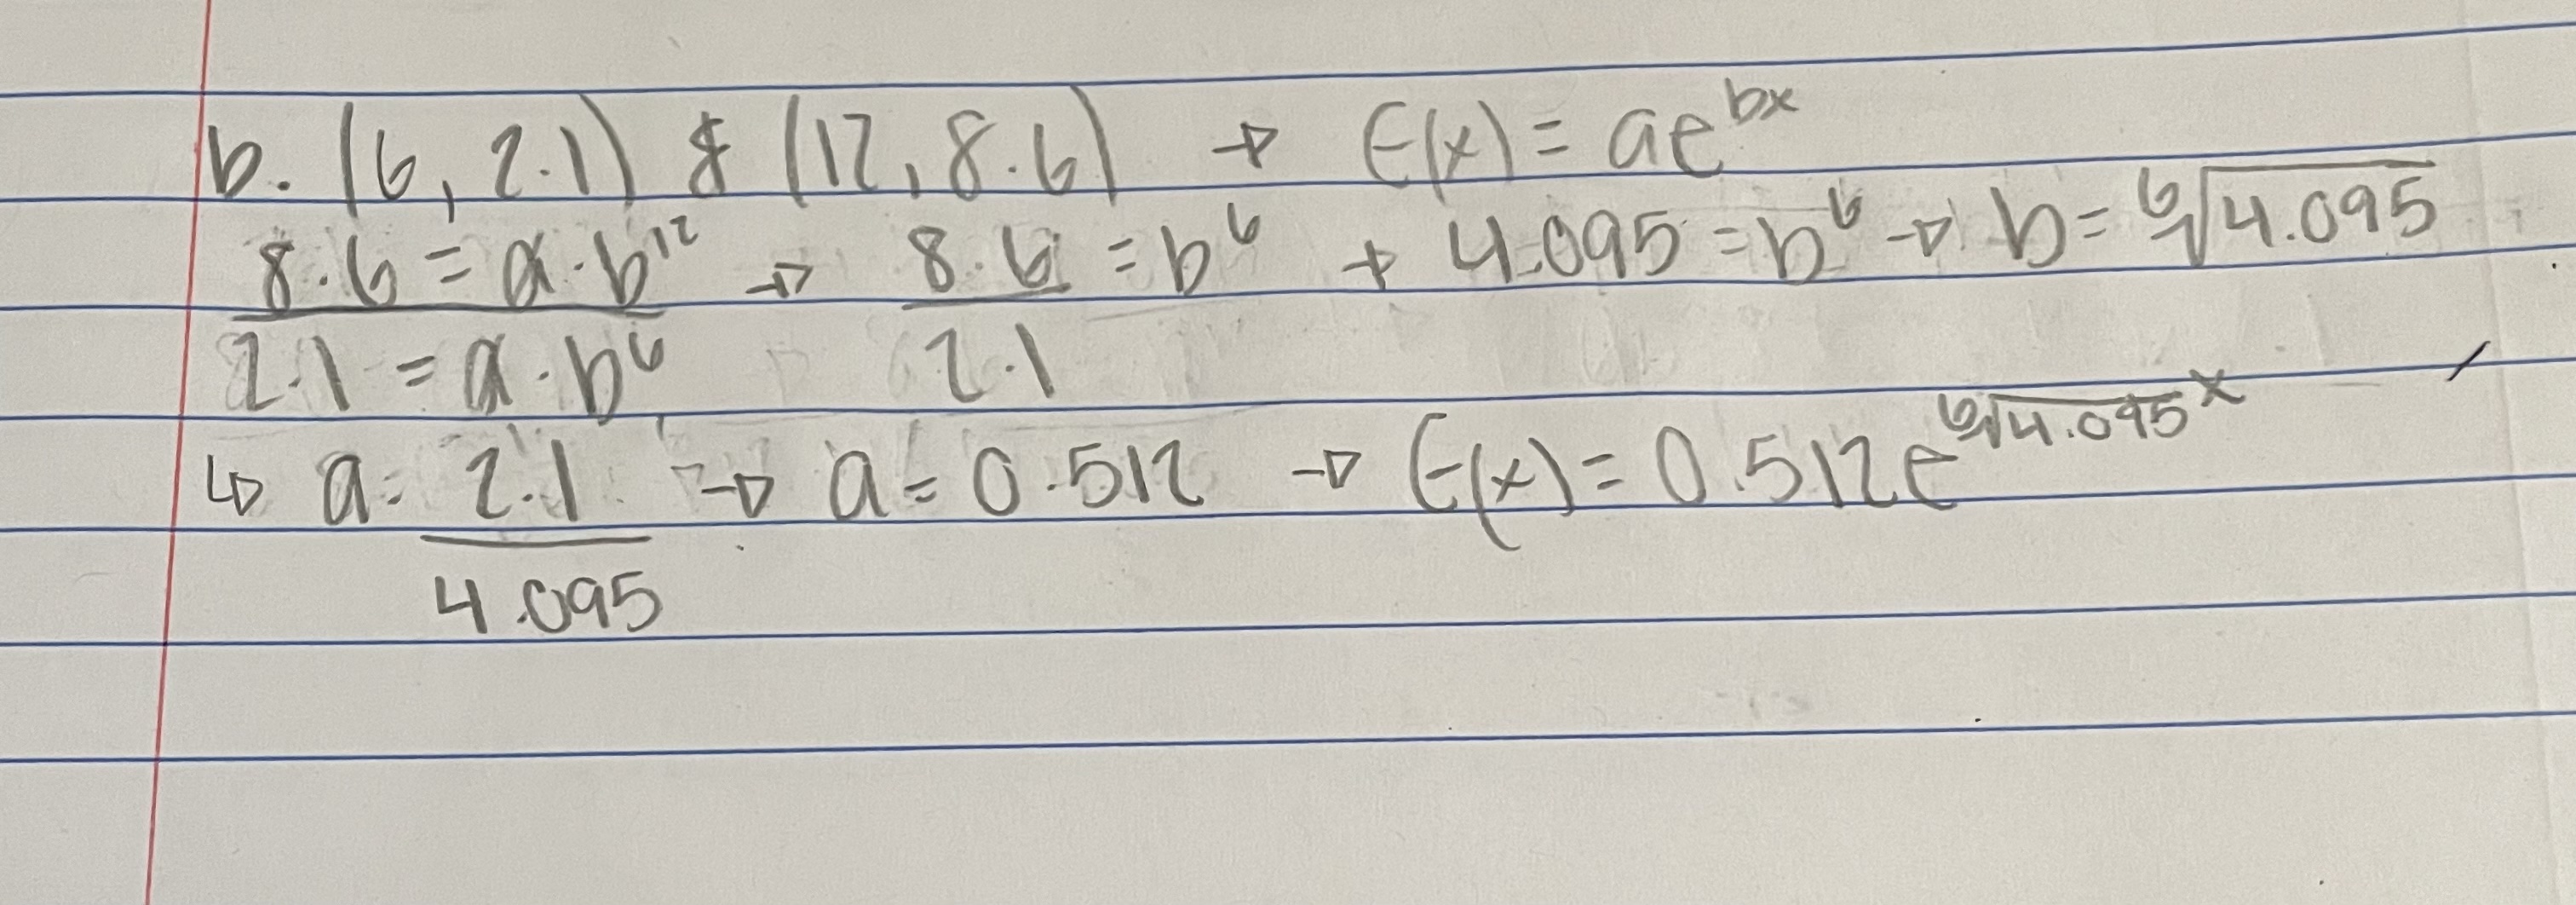 b. (6, 2.1) & (12, 8.6) → E(x) = ae^bx
8.6 = a·b^12 → 8.6 = b^6 → 4.095 = b^6 → b = ⁶√4.095
2.1 = a·b^6 2.1
↳ a = 2.1 → a = 0.512 → E(x) = 0.512e^⁶√4.095 x
4.095